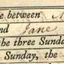 e between
and Jane
the three Sunda
Sunday, the